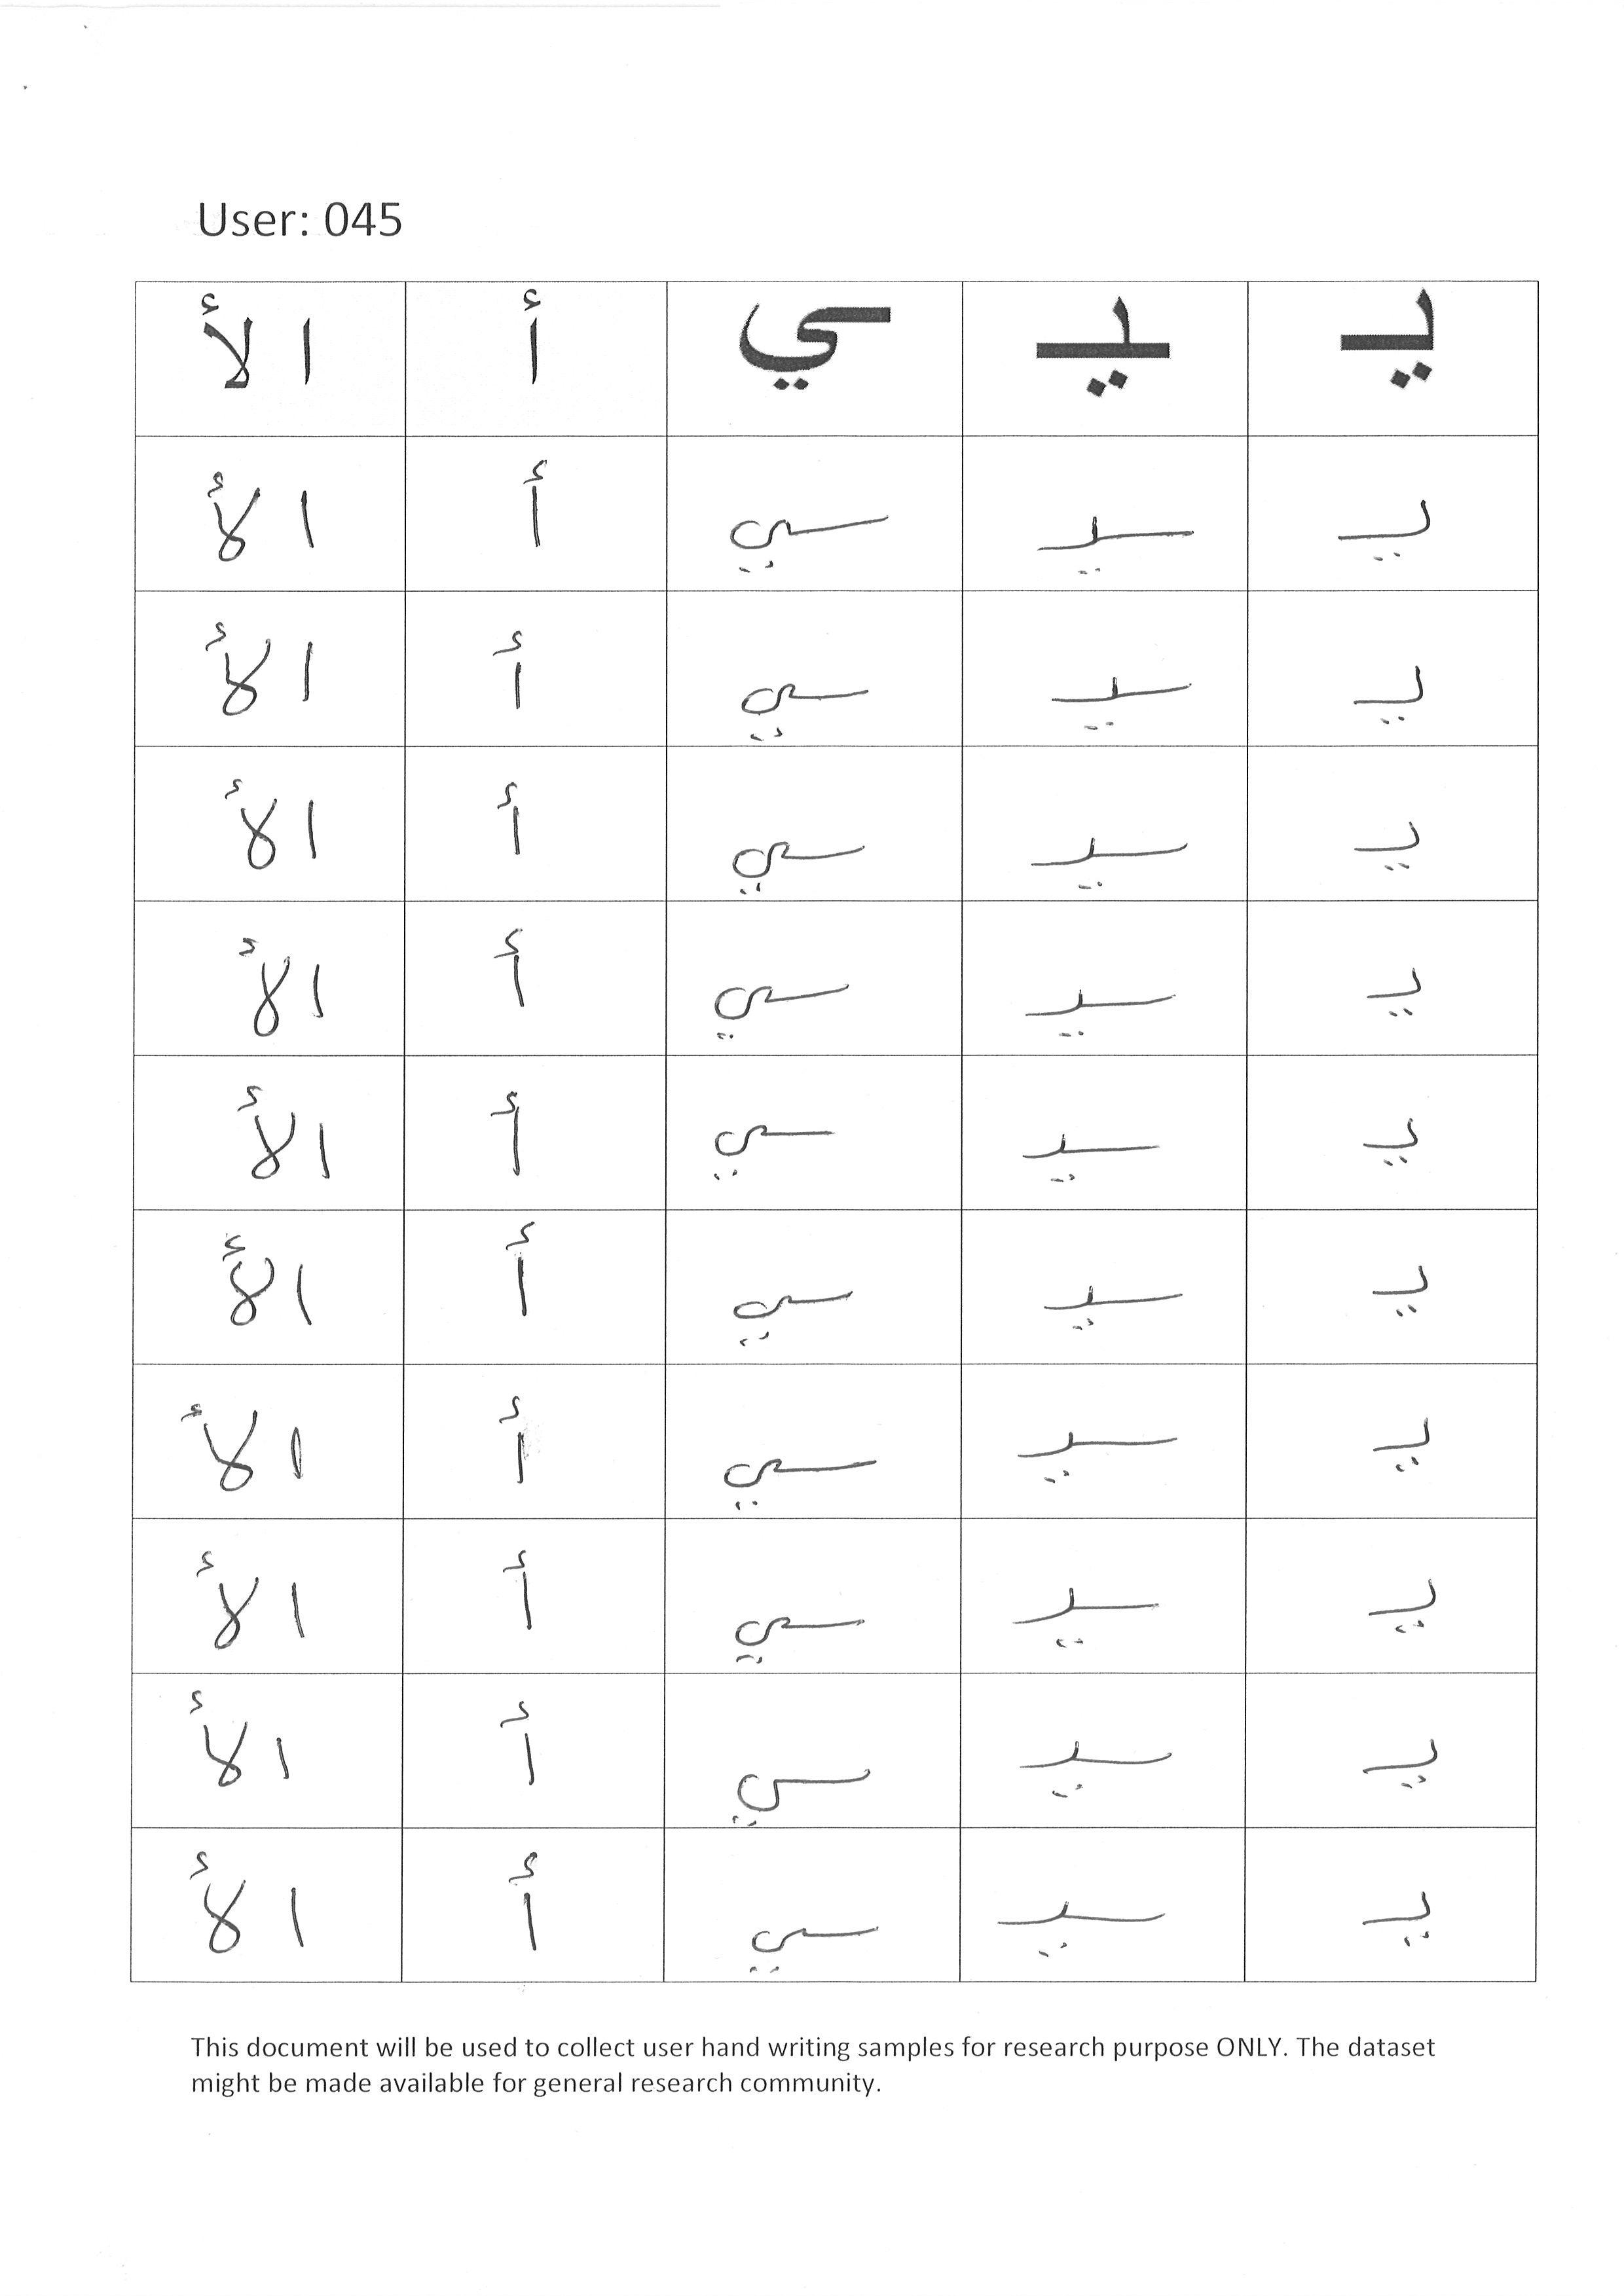 User: 045
يـ ـيـ ـي أ ا لأ
يـ ـيـ ـي أ ا لأ
يـ ـيـ ـي أ ا لأ
يـ ـيـ ـي أ ا لأ
يـ ـيـ ـي أ ا لأ
يـ ـيـ ـي أ ا لأ
يـ ـيـ ـي أ ا لأ
يـ ـيـ ـي أ ا لأ
يـ ـيـ ـي أ ا لأ
يـ ـيـ ـي أ ا لأ
يـ ـيـ ـي أ ا لأ
This document will be used to collect user hand writing samples for research purpose ONLY. The dataset
might be made available for general research community.